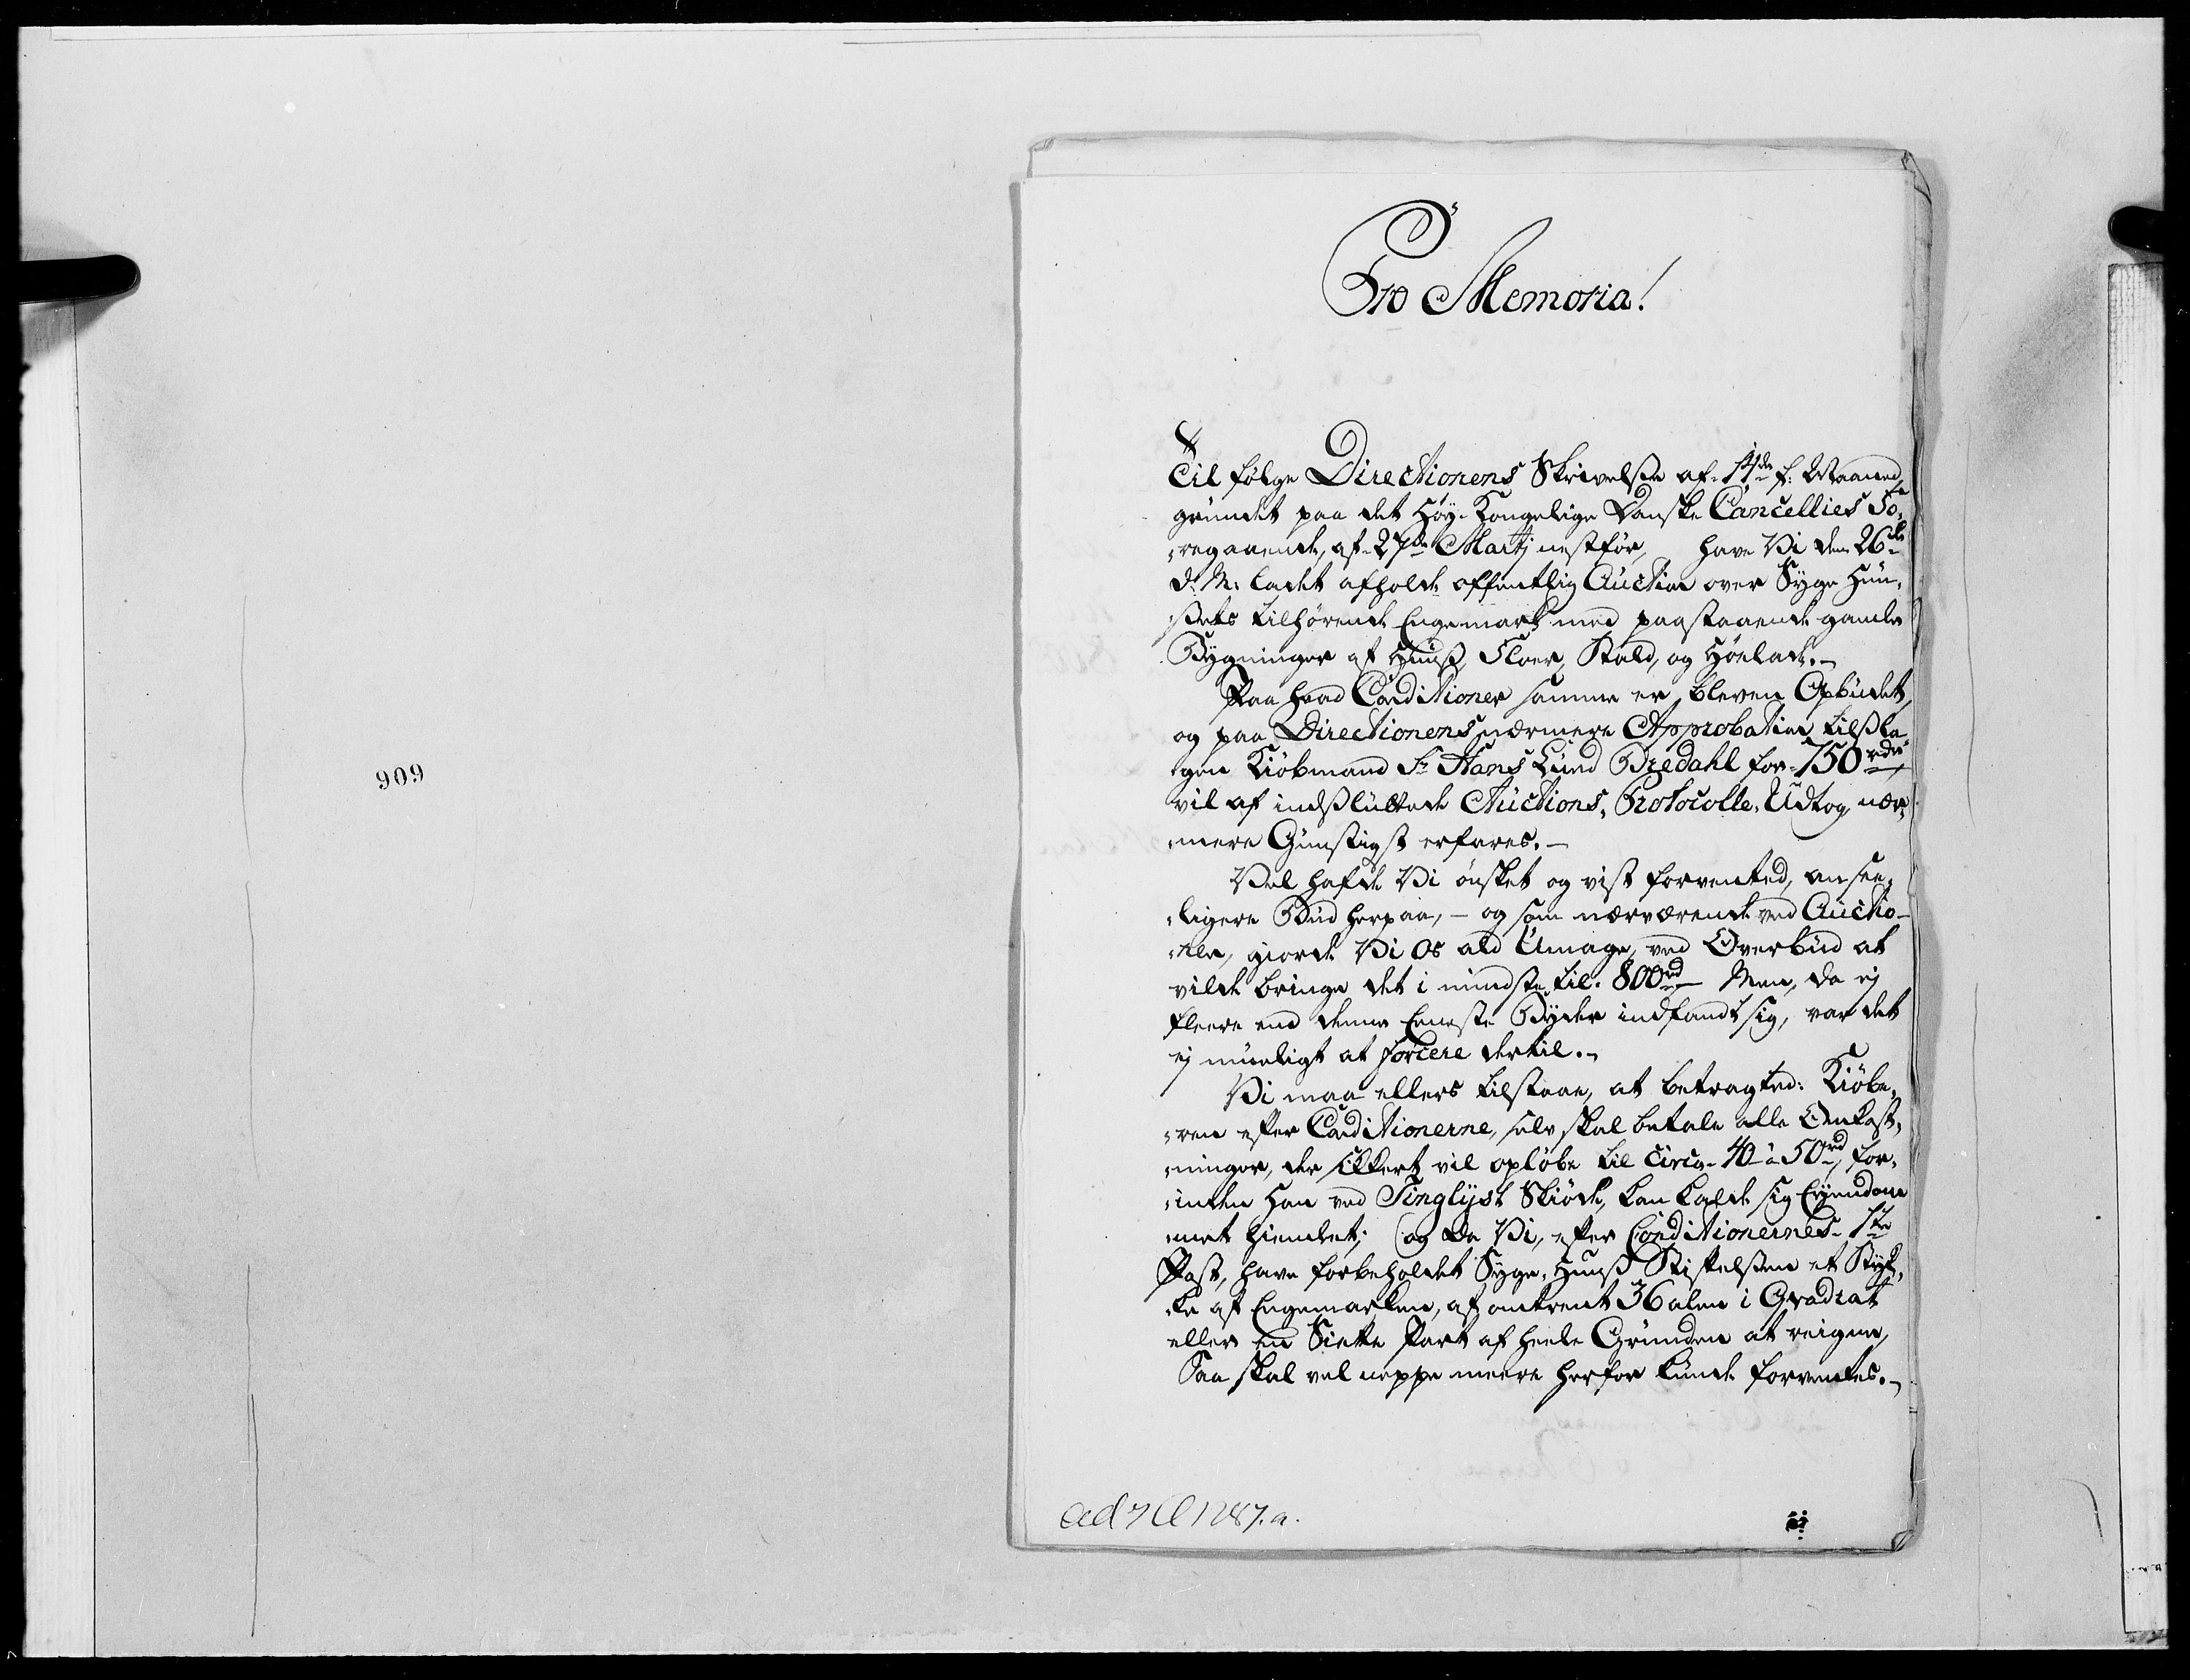 909
Pro Memoria!
Til følge Directionens Skrivelse af 14de f: Maaned,
grundet paa det Høy-Kongelige Danske Cancellies Fo-
regaaende, af 27de Martj nestfør, have Vi den 26de
d: M: ladet afholde offentlig Auction over Syge Huu-
sets tilhørende Engemark med paastaaende gamle
Bygninger af Huus, Floer, Stald, og Høelade.
Paa hvad Conditioner samme er bleven Opbudet,
og paa Directionens nærmere Approbation tilsla-
gen Kiøbmand Sr Hans Lund Bredahl for 750 rdr
vil af indsluttede Auctions-Protocolle-Udtog nær-
mere Gunstigst erfares.
Vel hafde Vi ønsket og vist forvented, ansee-
ligere Bud herpaa, - og som nærværende ved Auctio-
nen, giorde Vi Os ald Umage, ved Overbud at
vilde bringe det i mindste til 800rd Men, da ej
fleere end denne Eeneste Byder indfandt sig, var det
ej mueligt at forcere dertil.
Vi maa ellers tilstaae, at betragted: Kiøbe-
ren efter Conditionerne, selv skal betale alle Omkost-
ninger, der sikkert vil opløbe til circa 40 à 50rd, for-
inden Han ved Tinglyst Skiøde, kan kalde sig Eyendom-
met hiemlet; (og da Vi, efter Conditionernes 1te
Post, have forbeholdet Syge-Huus Stiftelsen et Styk-
ke af Engemarken, af omtrent 36 alen i Qvadrat
eller en Siette Part af heele Grunden at reigne,
Saa skal vel neppe meere herfor kunde forventes.
ad 1287.a.